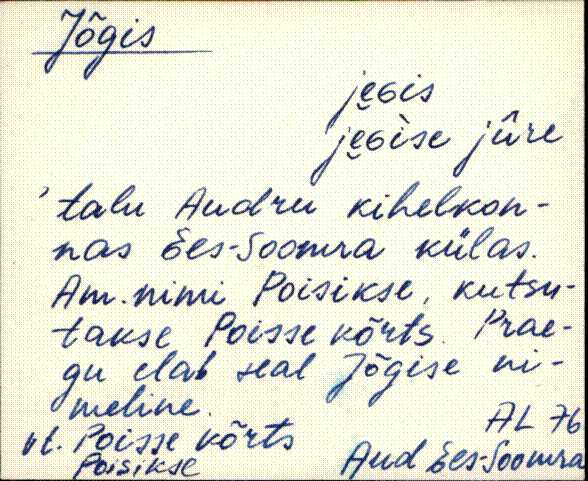 Jõgis
je̮ɢis
je̮ɢìse jûre
'talu Audru kihelkon-
nas Ees-Soomra külas.
Am. nimi Poisikse, kutsu-
takse Poisse kõrts. Prae-
gu elab seal Jõgise ni-
meline.
vt. Poisse kõrts
Poisikse
AL 76
Aud Ees-Soomra